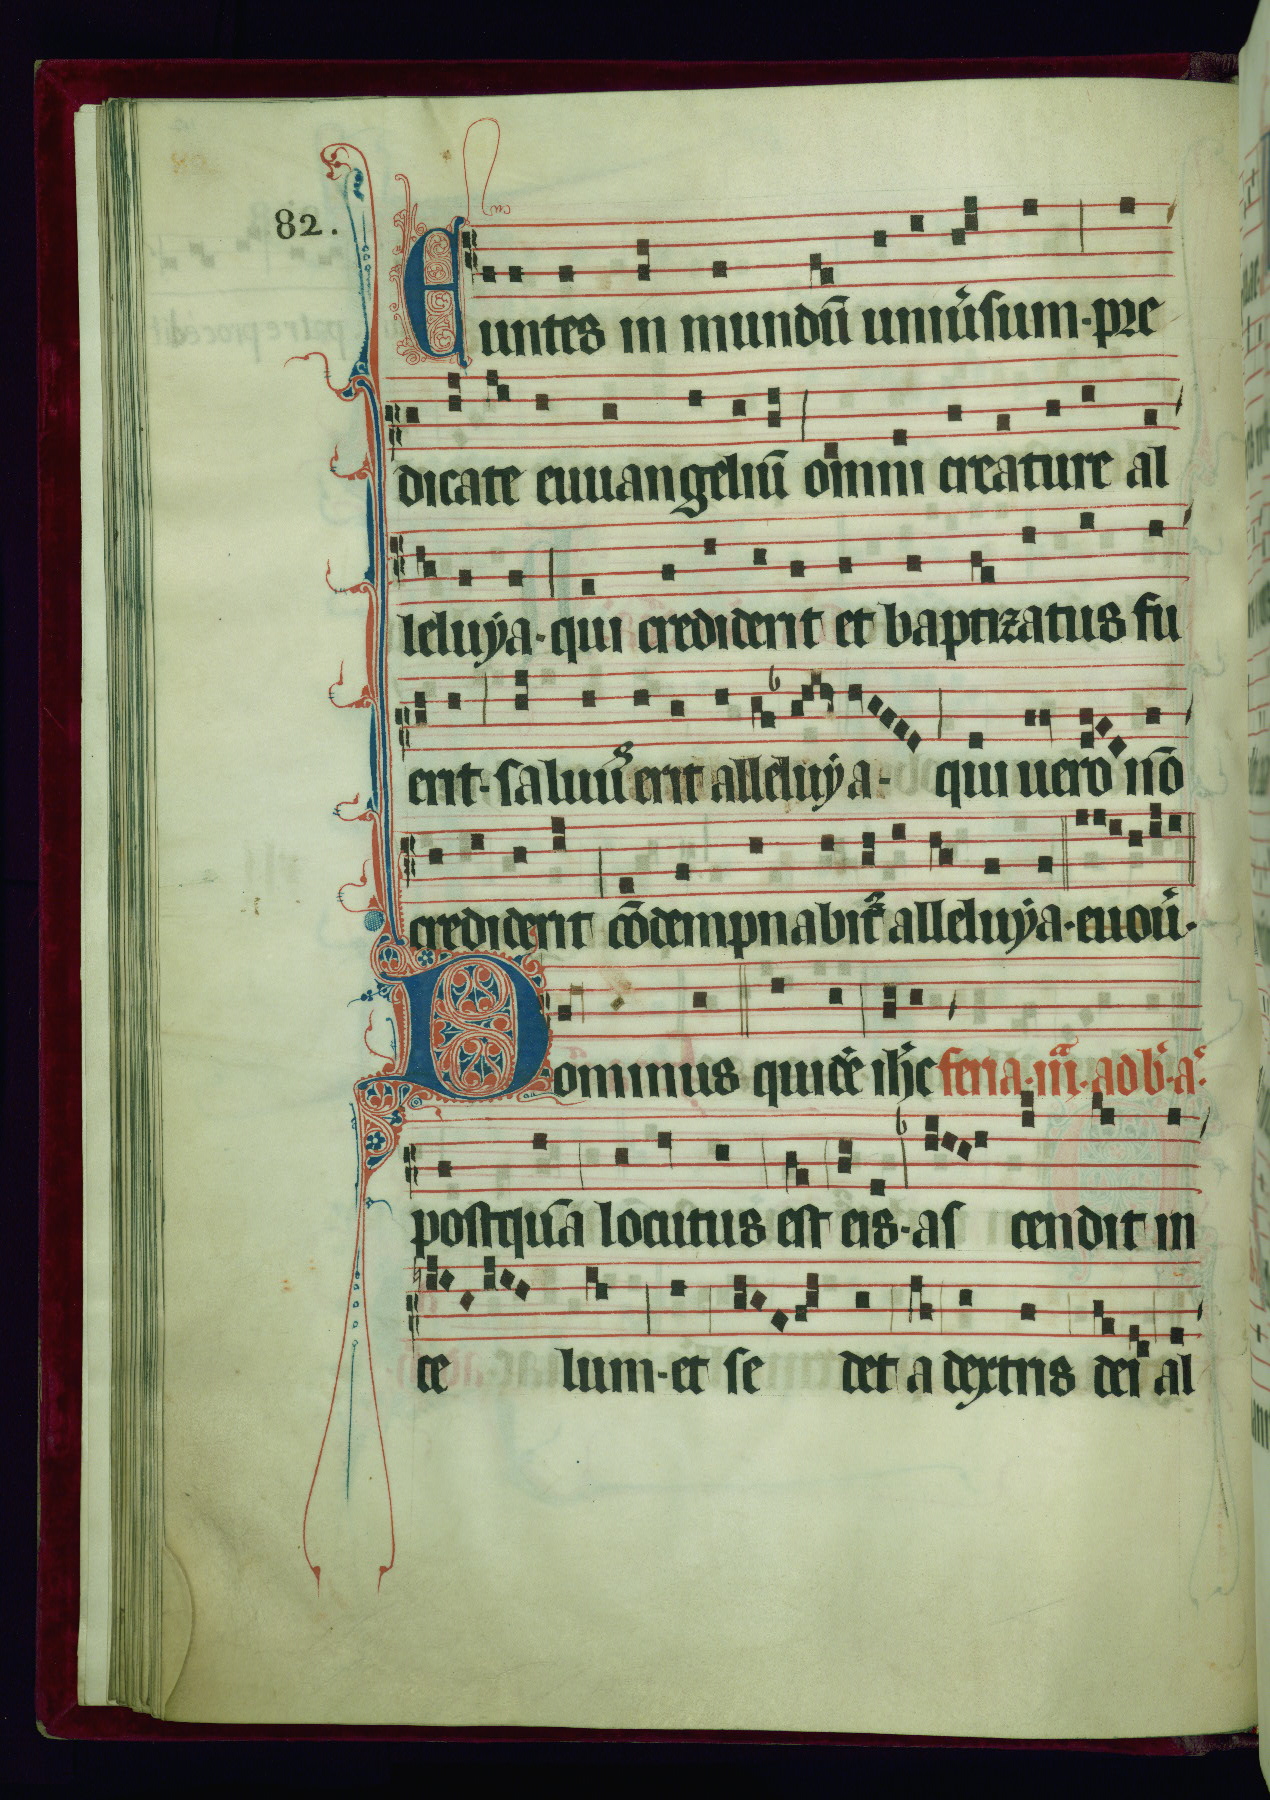 82.
Euntes in mundū uniu̾sum·pre
dicate euuangeliū omni creature al
leluẏa·qui crediderit et baptizatus fu
erit·saluu᷒ erit alleluẏa· qui uero nō
crediderit cōdempnabit᷑ alleluẏa·euou̾·
Dominus quidē ihc feria·iiii·ad b·a·
postquā locutus est eis·as cendit in
ce lum·et se det a dextris dei al